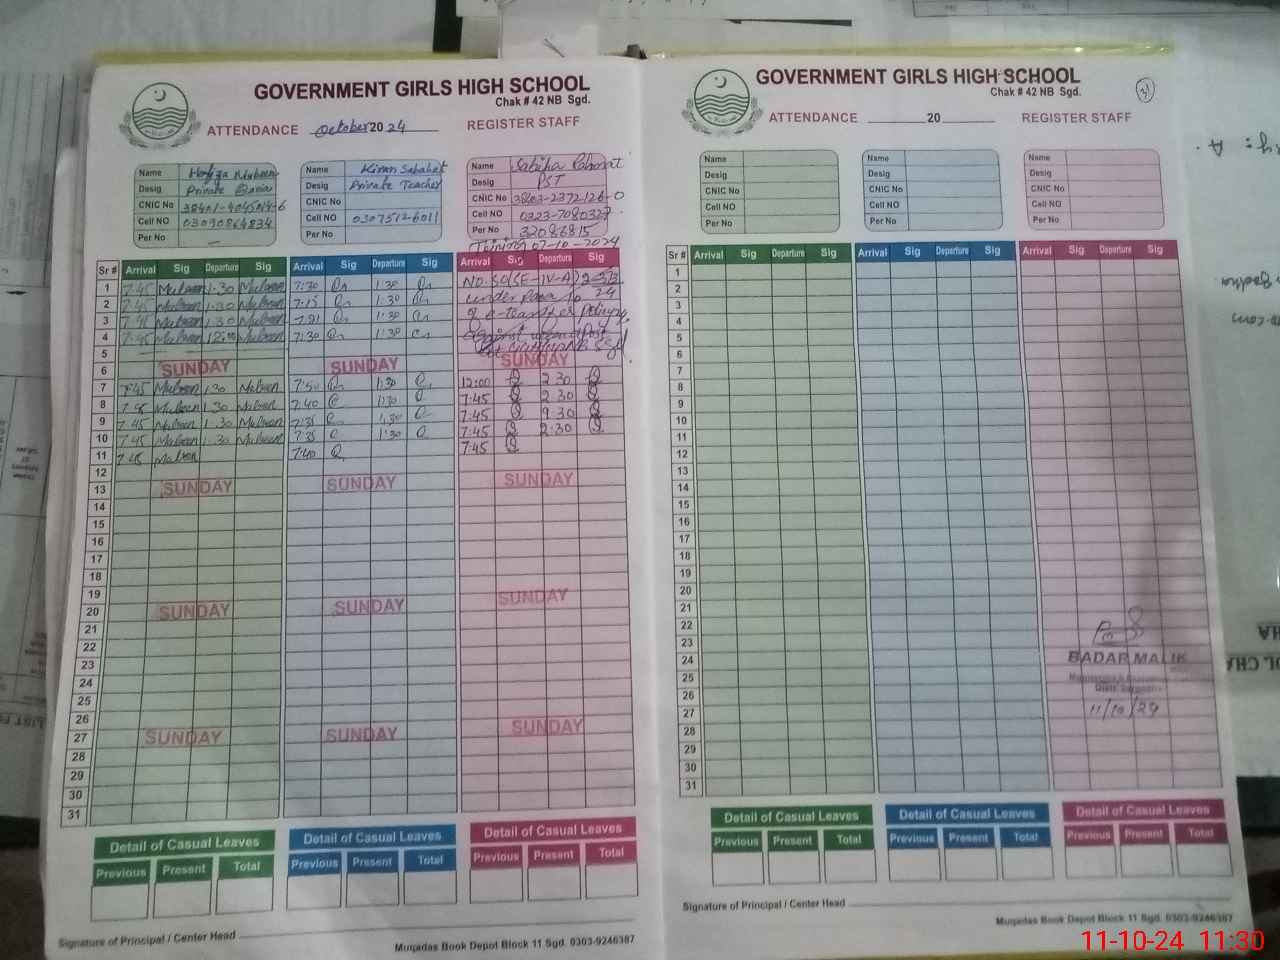 GOVERNMENT GIRLS HIGH SCHOOL
Chak # 42 NB Sgd.
ATTENDANCE October 2024 REGISTER STAFF
Name Mubeen
Desig Private
CNIC No 38401-4045014-6
Cell NO 03090864834
Per No —
Name Kiran Sabahat
Desig Private Teacher
CNIC No
Cell NO 03075126011
Per No
Name Sabiha Rahmat
Desig PST
CNIC No 38403-2372126-0
Cell NO 0323-7080327
Per No 32086815
07-10-2024
Sr # Arrival Sig Departure Sig Arrival Sig Departure Sig Arrival Sig Departure Sig
1 7:45 Mubeen 1:30 Mubeen 7:30 1:30 NO.SO(SE-IV-A)2-
2 7:45 Mubeen 1:30 Mubeen 7:15 1:30 under Para
3 7:45 Mubeen 1:30 Mubeen 1:30 of e-transfer
4 7:45 Mubeen 12:00 Mubeen 7:30 1:30
5
6 SUNDAY SUNDAY SUNDAY
7 7:45 Mubeen 1:30 Mubeen 7:50 1:30 12:00 2:30
8 7:45 Mubeen 1:30 Mubeen 7:40 1:30 7:45 2:30
9 7:45 Mubeen 1:30 Mubeen 7:35 1:30 7:45 30
10 7:45 Mubeen 1:30 Mubeen 7:35 1:30 7:45 2:30
11 7:45 Mubeen 7:40 7:45
12
13 SUNDAY SUNDAY SUNDAY
14
15
16
17
18
19
20 SUNDAY SUNDAY SUNDAY
21
22
23
24
25
26
27 SUNDAY SUNDAY SUNDAY
28
29
30
31
Detail of Casual Leaves Detail of Casual Leaves Detail of Casual Leaves
Previous Present Total Previous Present Total Previous Present Total
Signature of Principal / Center Head
Muqadas Book Depot Block 11 Sgd. 0303-9246387
GOVERNMENT GIRLS HIGH SCHOOL
Chak # 42 NB Sgd.
31
ATTENDANCE 20 REGISTER STAFF
Name Name Name
Desig Desig Desig
CNIC No CNIC No CNIC No
Cell NO Cell NO Cell NO
Per No Per No Per No
Sr # Arrival Sig Departure Sig Arrival Sig Departure Sig Arrival Sig Departure Sig
1
2
3
4
5
6
7
8
9
10
11
12
13
14
15
16
17
18
19
20
21
22
23
24
25
26
27
28
29
30
31
BADAR MALIK
11/10/24
Detail of Casual Leaves Detail of Casual Leaves Detail of Casual Leaves
Previous Present Total Previous Present Total Previous Present Total
Signature of Principal / Center Head
Muqadas Book Depot Block 11 Sgd. 0303-9246387
11-10-24 11:30